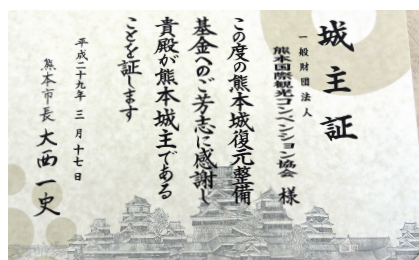 城主証
一般財団法人
熊本国際観光コンベンション協会 様
この度の熊本城復元整備
基金へのご芳志に感謝し
貴殿が熊本城主である
ことを証します
平成二十九年 三月十七日
熊本市長 大西一史